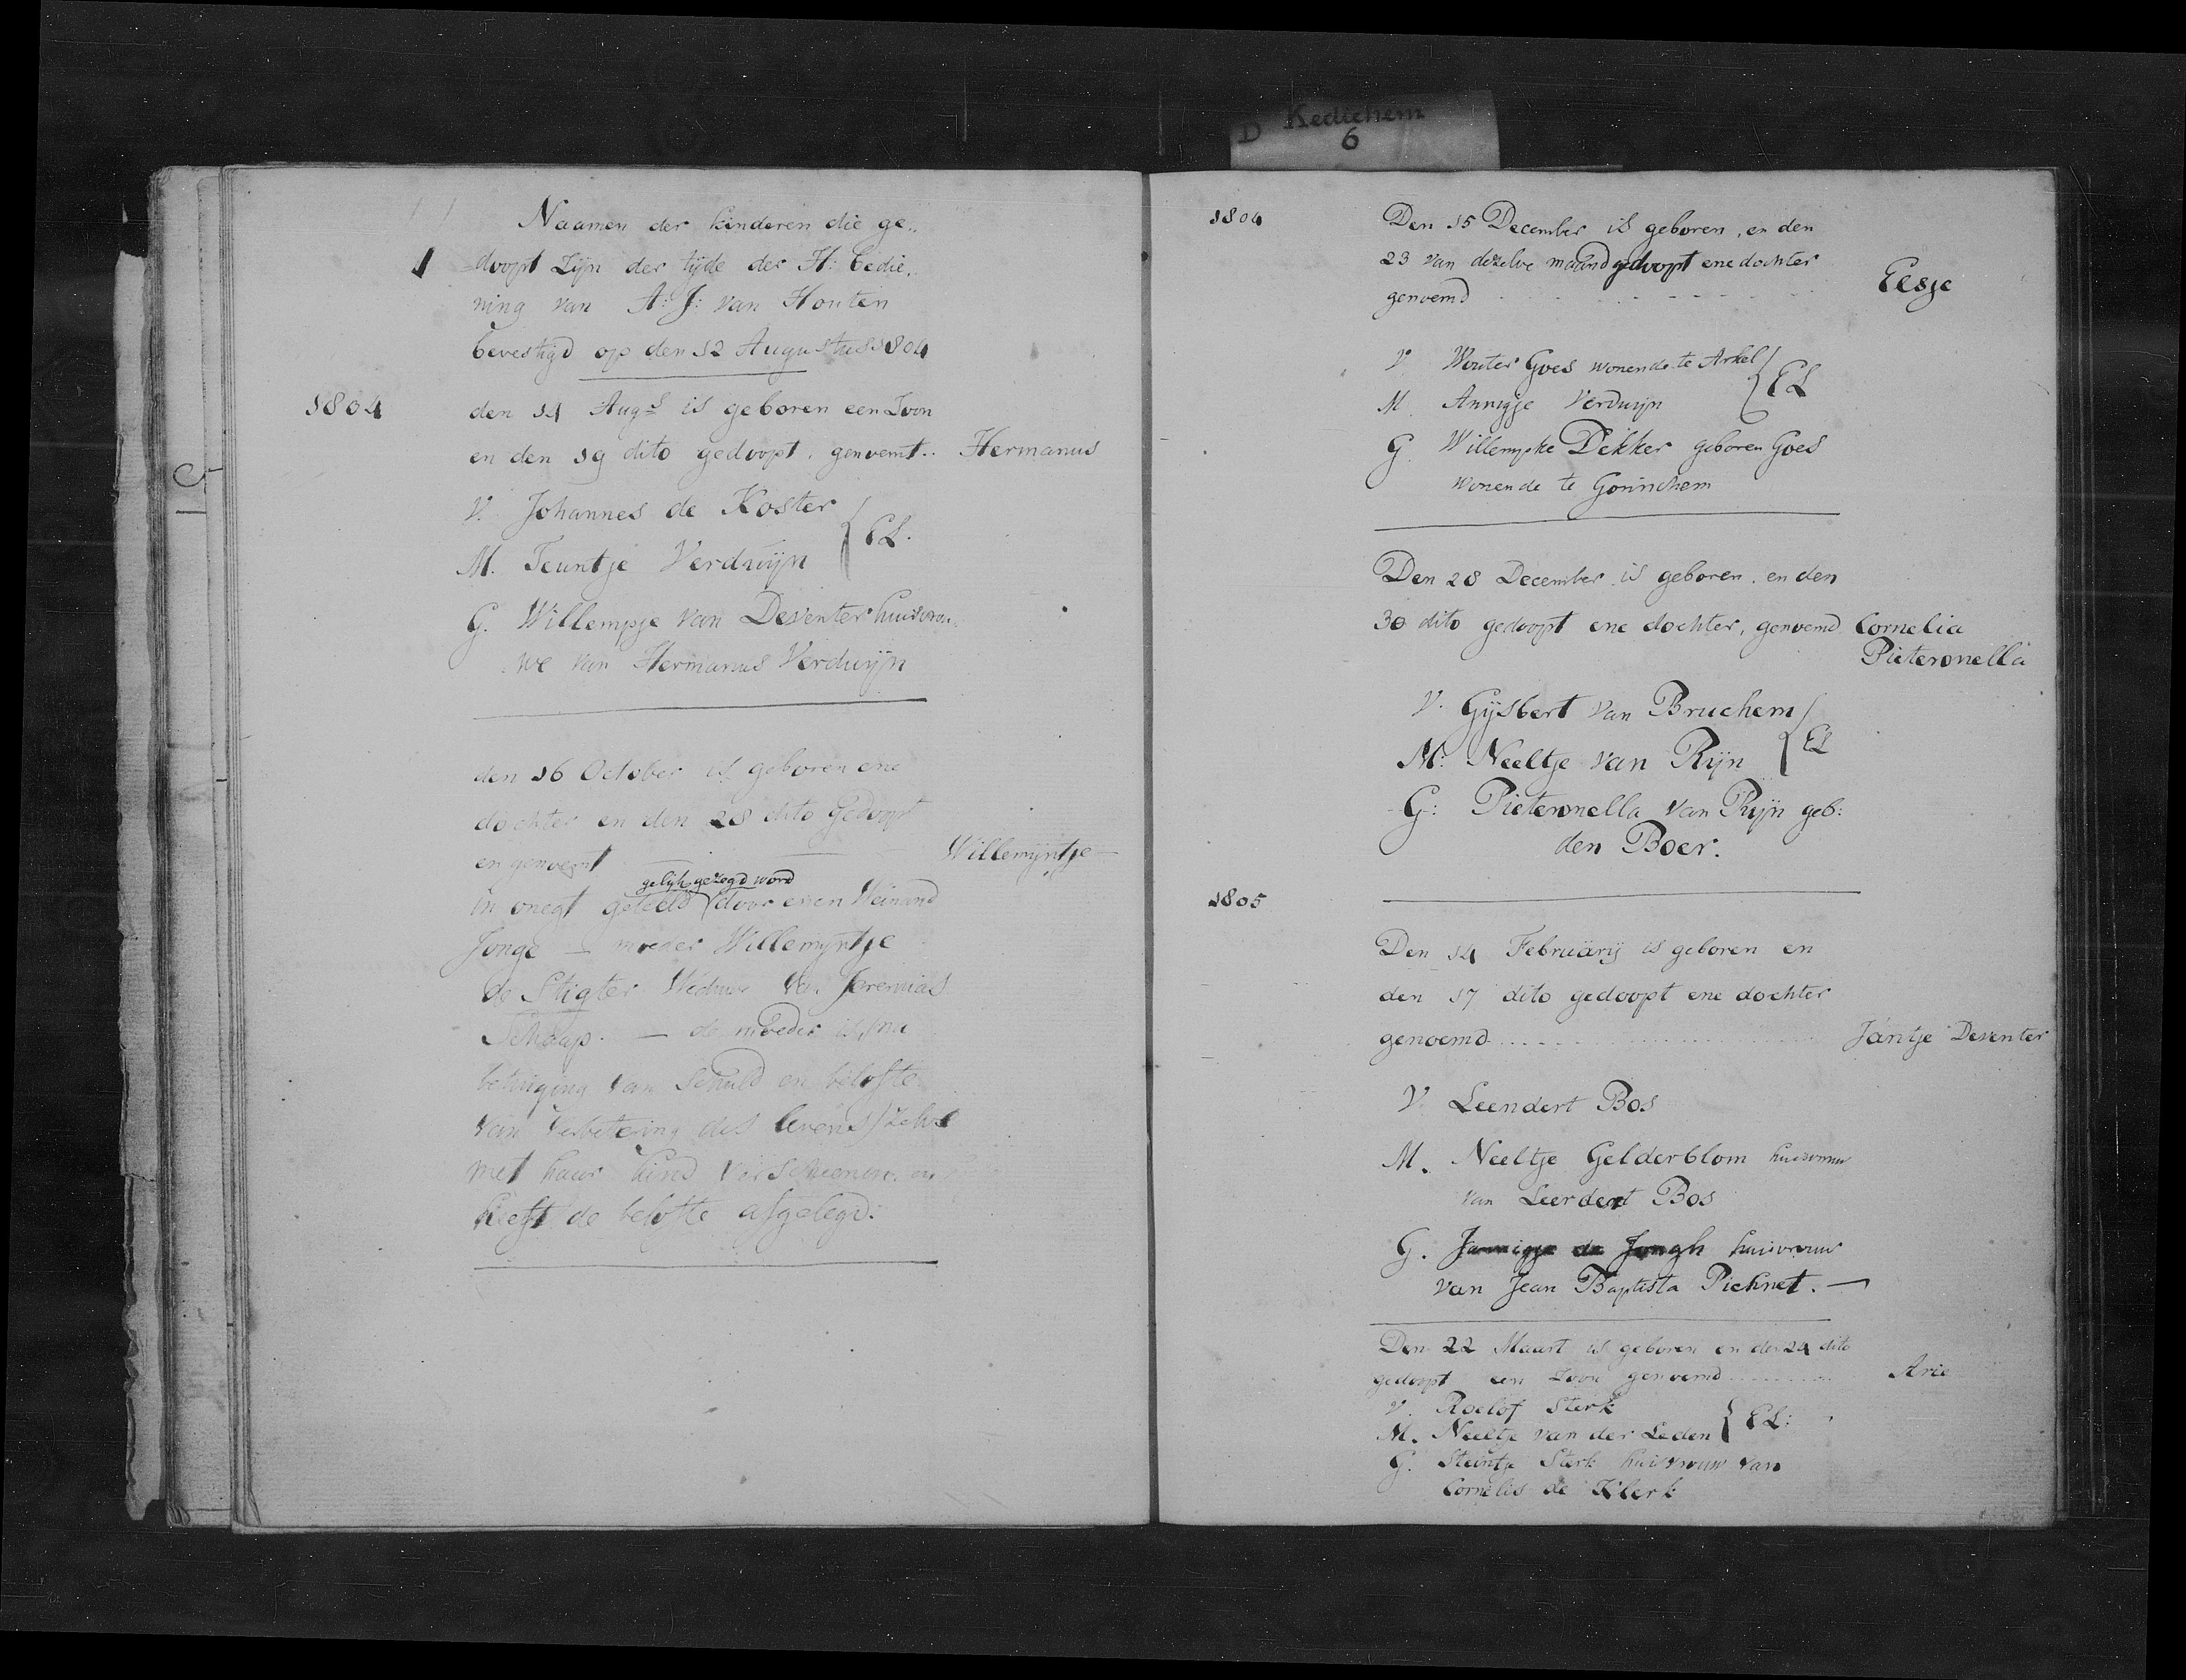 D Kedichem
6
Naamen der kinderen die ge„
doopt Zijn der tijde der H: bedie„
ning van A: J: van Houten
bevestigd op den 12 Augustus 1804
1804
den 14 Augs is geboren een Zoon
en den 19 dito gedoopt, genoemt.. Hermanus
V. Johannes de Koster
EL.
M. Teuntje Verduijn
G. Willempje van Deventer huisvrou„
we van Hermanus Verduijn
den 16 October is geboren ene
dochter en den 28 dito Gedoopt
en genoemt Willemijntje
gelijk gezegd word
in onegt geteeld door enen Weinand
Jonge — moeder Willemijntje
de Stigter Weduwe van Jeremias
Schaap. — de moeder is, na
betuiging van Schuld en belofte
van Verbetering des levens zelve
met haar kind verscheenen en
heeft de belofte afgelegd.
1804
Den 15 December is geboren, en den
23 van dezelve maand gedoopt ene dochter
genoemd Elsje
V. Wouter Goes wonende te Arkel
EL
M. Annigje Verduijn
G. Willempke Dekker geboren Goes
wonende te Gorinchem
Den 28 December is geboren, en den
30 dito gedoopt ene dochter, genoemd Cornelia
Pieternella
V. Gijsbert van Bruchem
EL
M: Neeltje van Rijn
G: Pieternella van Rijn geb:
den Boer.
1805
Den 14 Februarij is geboren en
den 17 dito gedoopt ene dochter
genoemd Jantje Deventer
V. Leendert Bos
M. Neeltje Gelderblom huisvrouw
van Leendert Bos
G. Jannigje de Jongh huisvrouw
van Jean Baptista Pichnet. —
Den 22 Maart is geboren en den 24 dito
gedoopt een Zoon genoemd Arie
V. Roelof Sterk
EL:
M. Neeltje van der Leden
G. Steintje Sterk huisvrouw van
Cornelis de Klerk